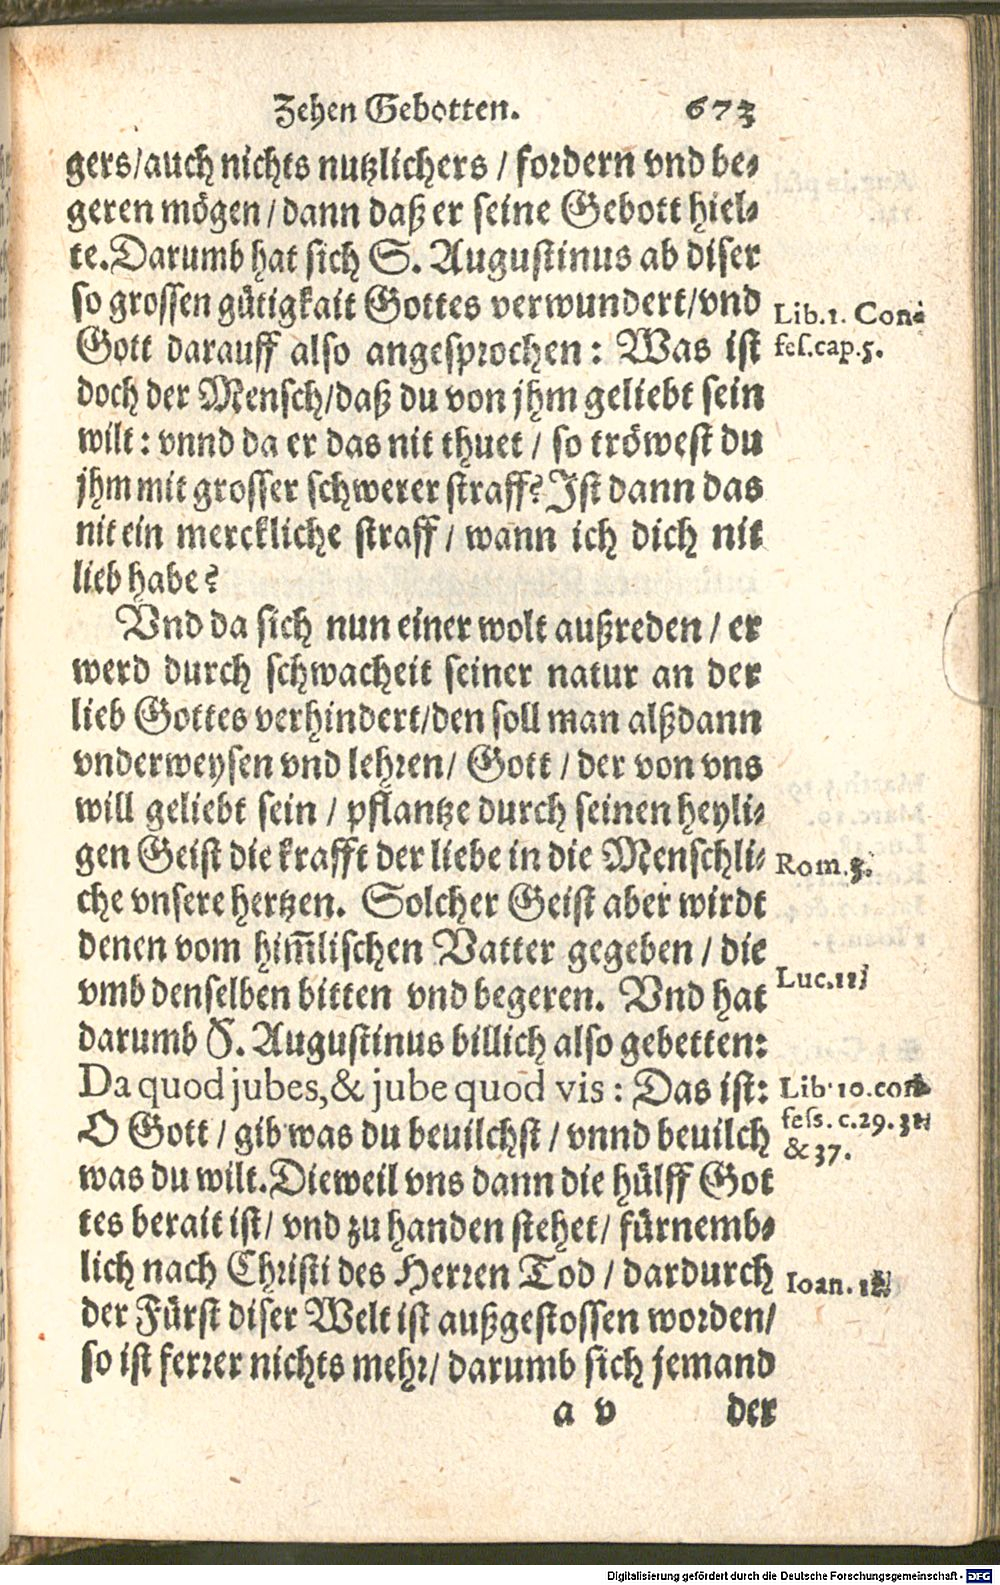 Zehen Gebotten. 673
gers/auch nichts nutzlichers / fordern vnd be-
geren mögen / dann daß er seine Gebott hiel-
te. Darumb hat sich S. Augustinus ab diser
so grossen gütigkait Gottes verwundert/vnd
Lib.1. Con-
Gott darauff also angesprochen: Was ist
fes.cap.5.
doch der Mensch/daß du von jhm geliebt sein
wilt: vnnd da er das nit thuet / so tröwest du
jhm mit grosser schwerer straff? Ist dann das
nit ein merckliche straff / wann ich dich nit
lieb habe?
Vnd da sich nun einer wolt außreden / er
werd durch schwacheit seiner natur an der
lieb Gottes verhindert/den soll man alßdann
vnderweysen vnd lehren/ Gott / der von vns
will geliebt sein / pflantze durch seinen heyli-
gen Geist die krafft der liebe in die Menschli-
Rom.5.
che vnsere hertzen. Solcher Geist aber wirdt
denen vom him̃lischen Vatter gegeben / die
Luc.11.
vmb denselben bitten vnd begeren. Vnd hat
darumb S. Augustinus billich also gebetten:
Da quod jubes, & jube quod vis: Das ist:
Lib 10.con
O Gott / gib was du beuilchst / vnnd beuilch
fess. c.29. 31.
& 37.
was du wilt. Dieweil vns dann die hülff Got
tes berait ist/ vnd zu handen stehet/ fürnemb-
lich nach Christi des Herren Tod / dardurch
Ioan. 12.
der Fürst diser Welt ist außgestossen worden/
so ist ferrer nichts mehr/ darumb sich jemand
a v der
Digitalisierung gefördert durch die Deutsche Forschungsgemeinschaft - DFG